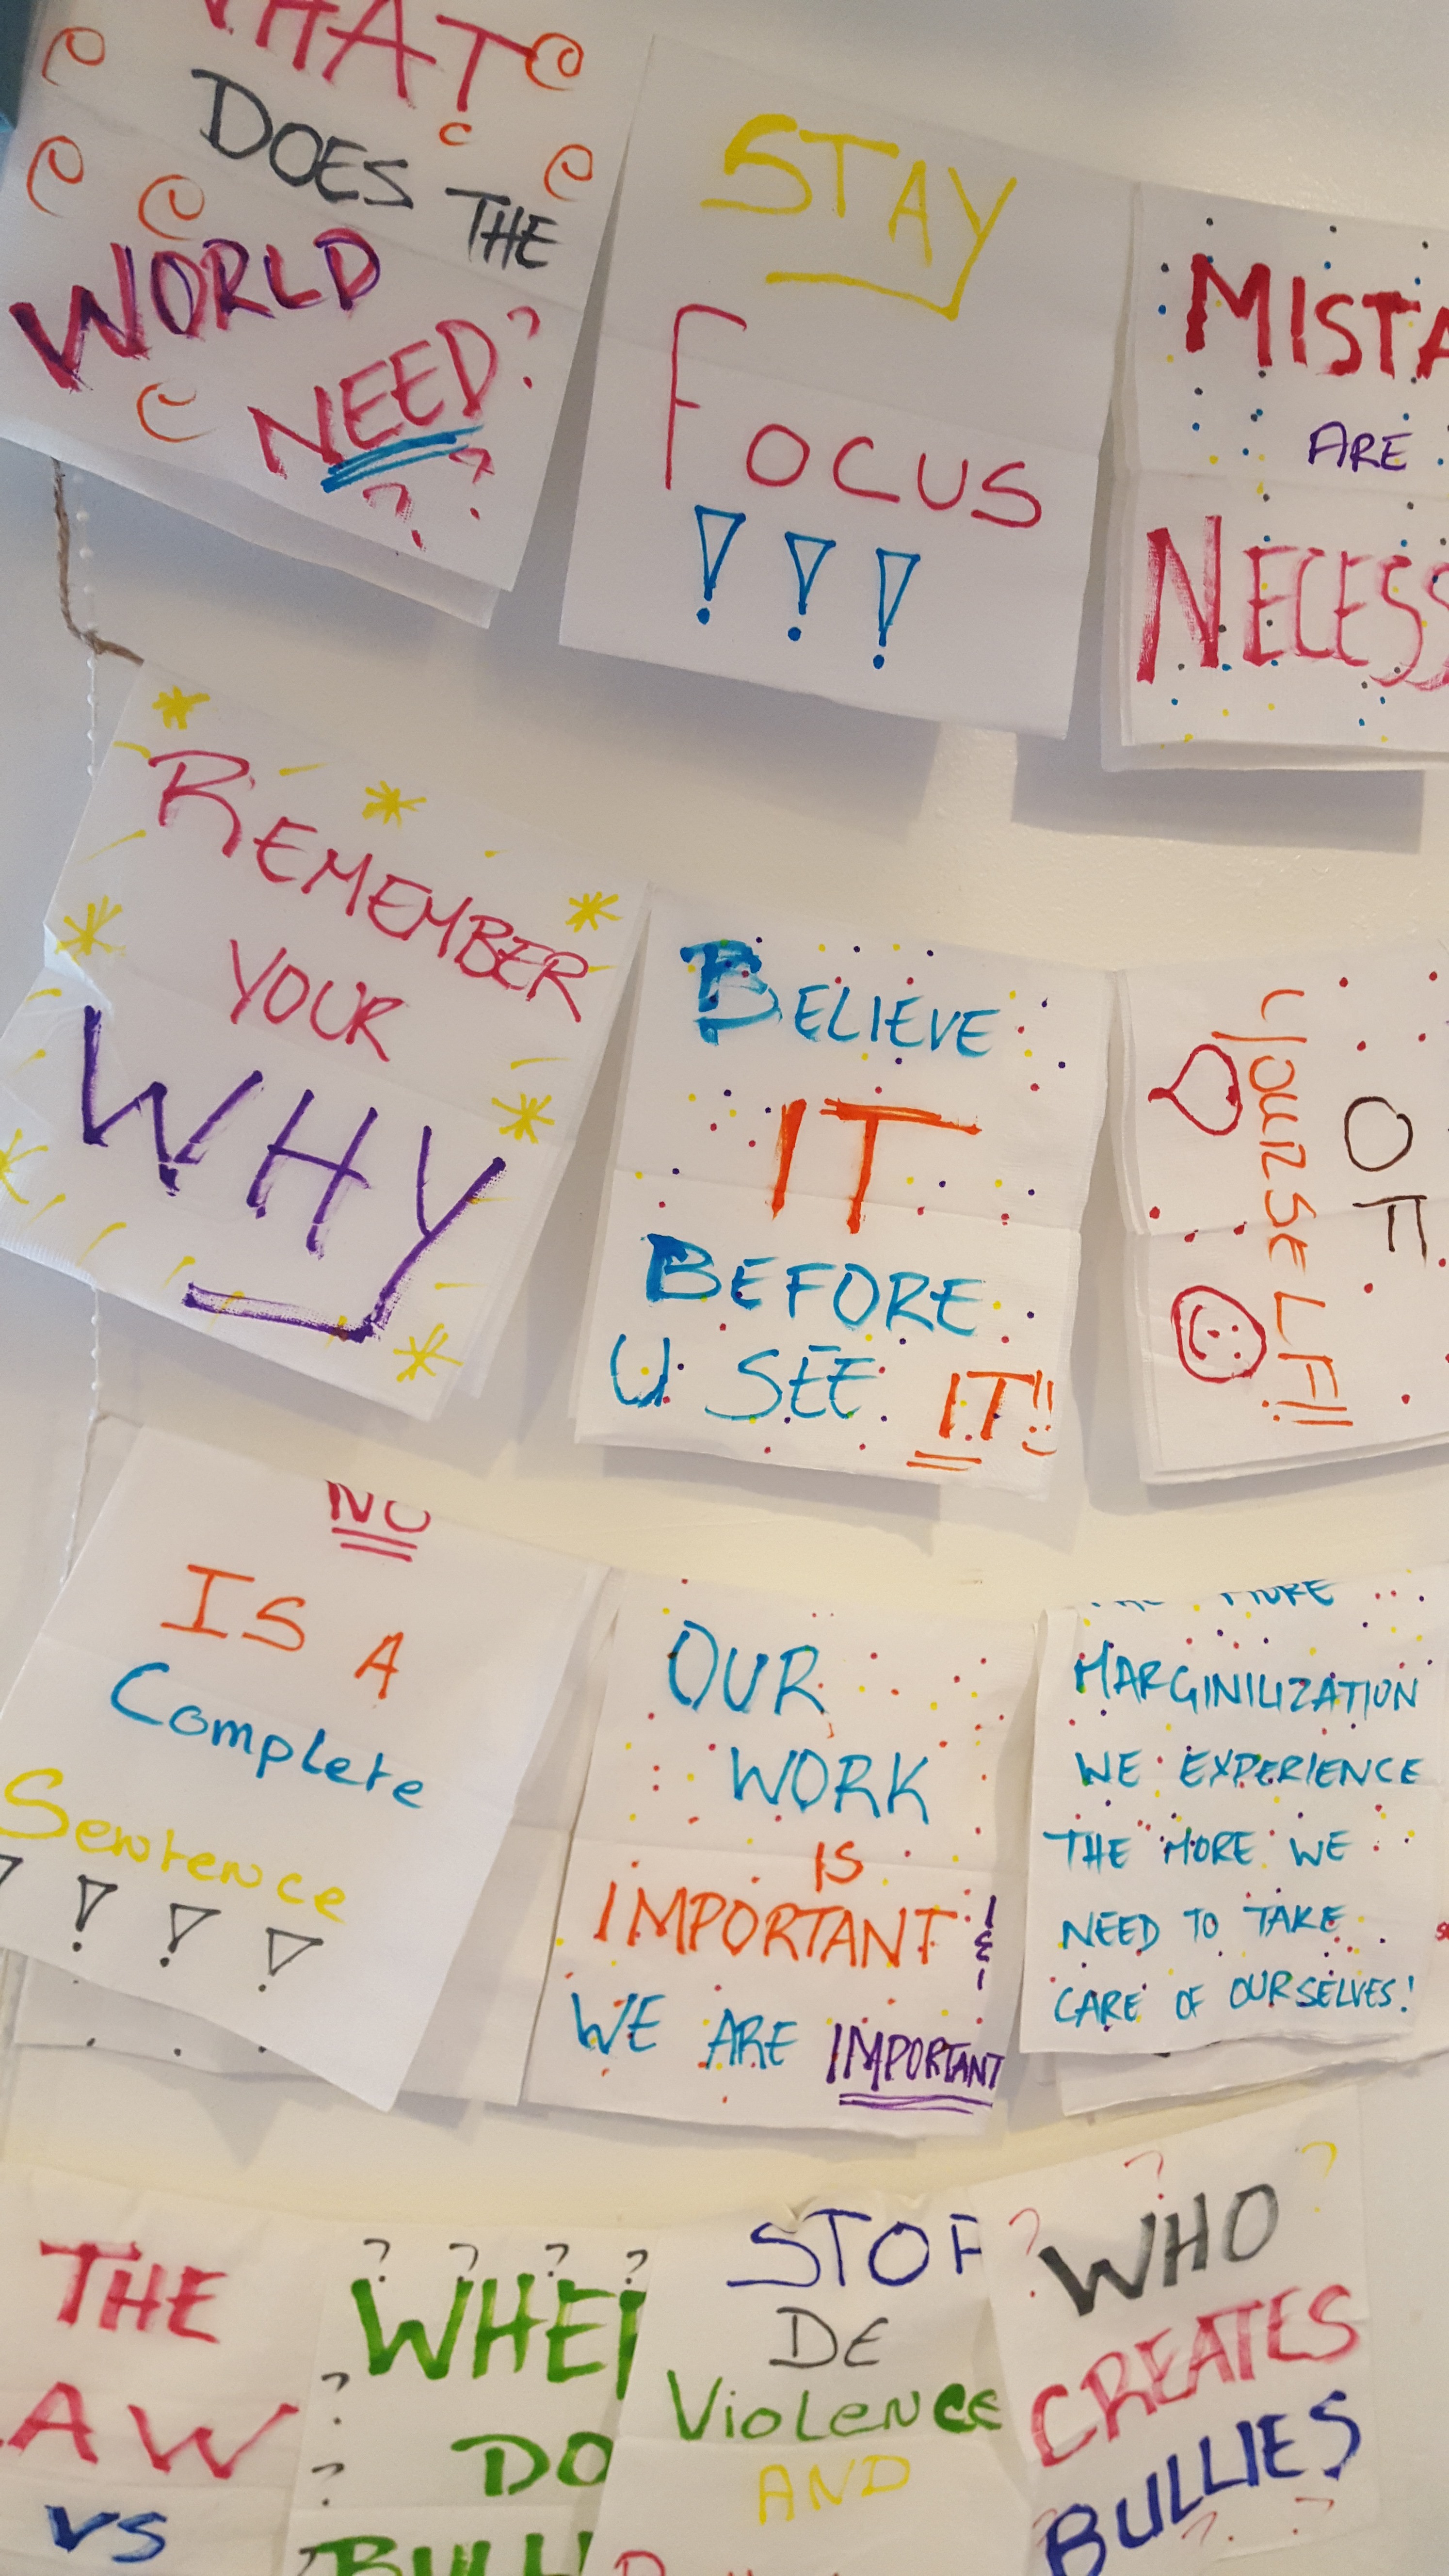 WHAT
DOES THE
WORLD
NEED?
? ?
STAY
FOCUS
!!!
MISTA
ARE
NECESS
REMEMBER
YOUR
WHY
BELIEVE
IT
BEFORE
U SEE IT!!
YOURSELF!!
NO
IS A
Complete
Sentence
! ! ! !
OUR
WORK
IS
IMPORTANT &
WE ARE IMPORTANT
MORE
MARGINILIZATION
WE EXPERIENCE
THE MORE WE
NEED TO TAKE
CARE OF OURSELVES!
THE
AW
VS
? ? ? ?
WHE
DO
BULL
STOP
DE
Violence
AND
? ? ?
WHO
CREATES
BULLIES
? ?